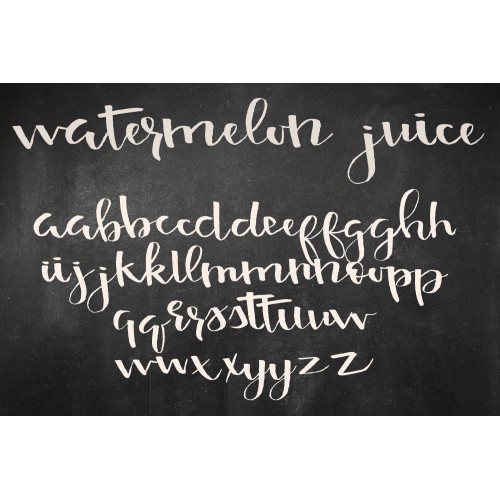 watermelon juice
aabbccddeeffgghh
iijjkkllmmnnoopp
qqrrssttuuvv
wwxxyyzz